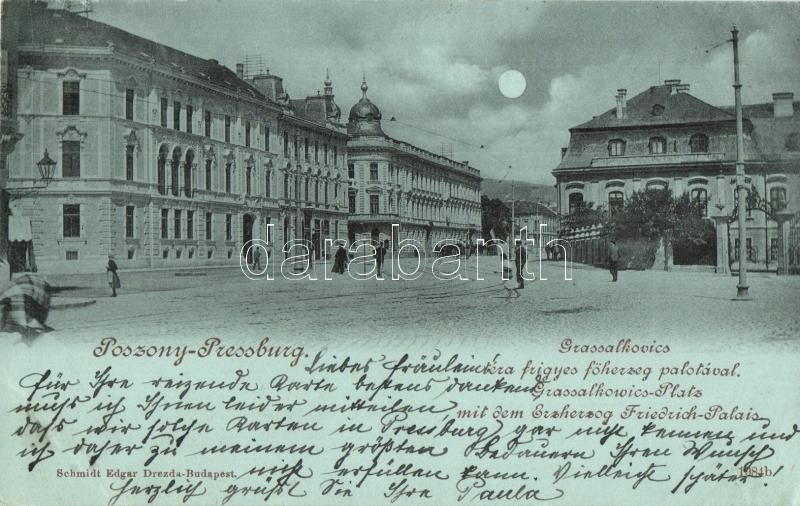 darabanth
Poszony-Pressburg.
Grassalkovics
téra frigyes főherzeg palotával.
Grassalkowics-Platz
mit dem Erzherzog Friedrich-Palais
Liebes Fräulein
für Ihre reizende Karte bestens dankend
muss ich Ihnen leider mitteilen
dass wir solche Karten in Pressburg gar nicht kennen und
ich daher zu meinem größten Bedauern Ihren Wunsch
nicht erfüllen kann. Vielleicht später!
herzlich grüßt Sie Ihre Paula
Schmidt Edgar Drezda-Budapest.
1984b.